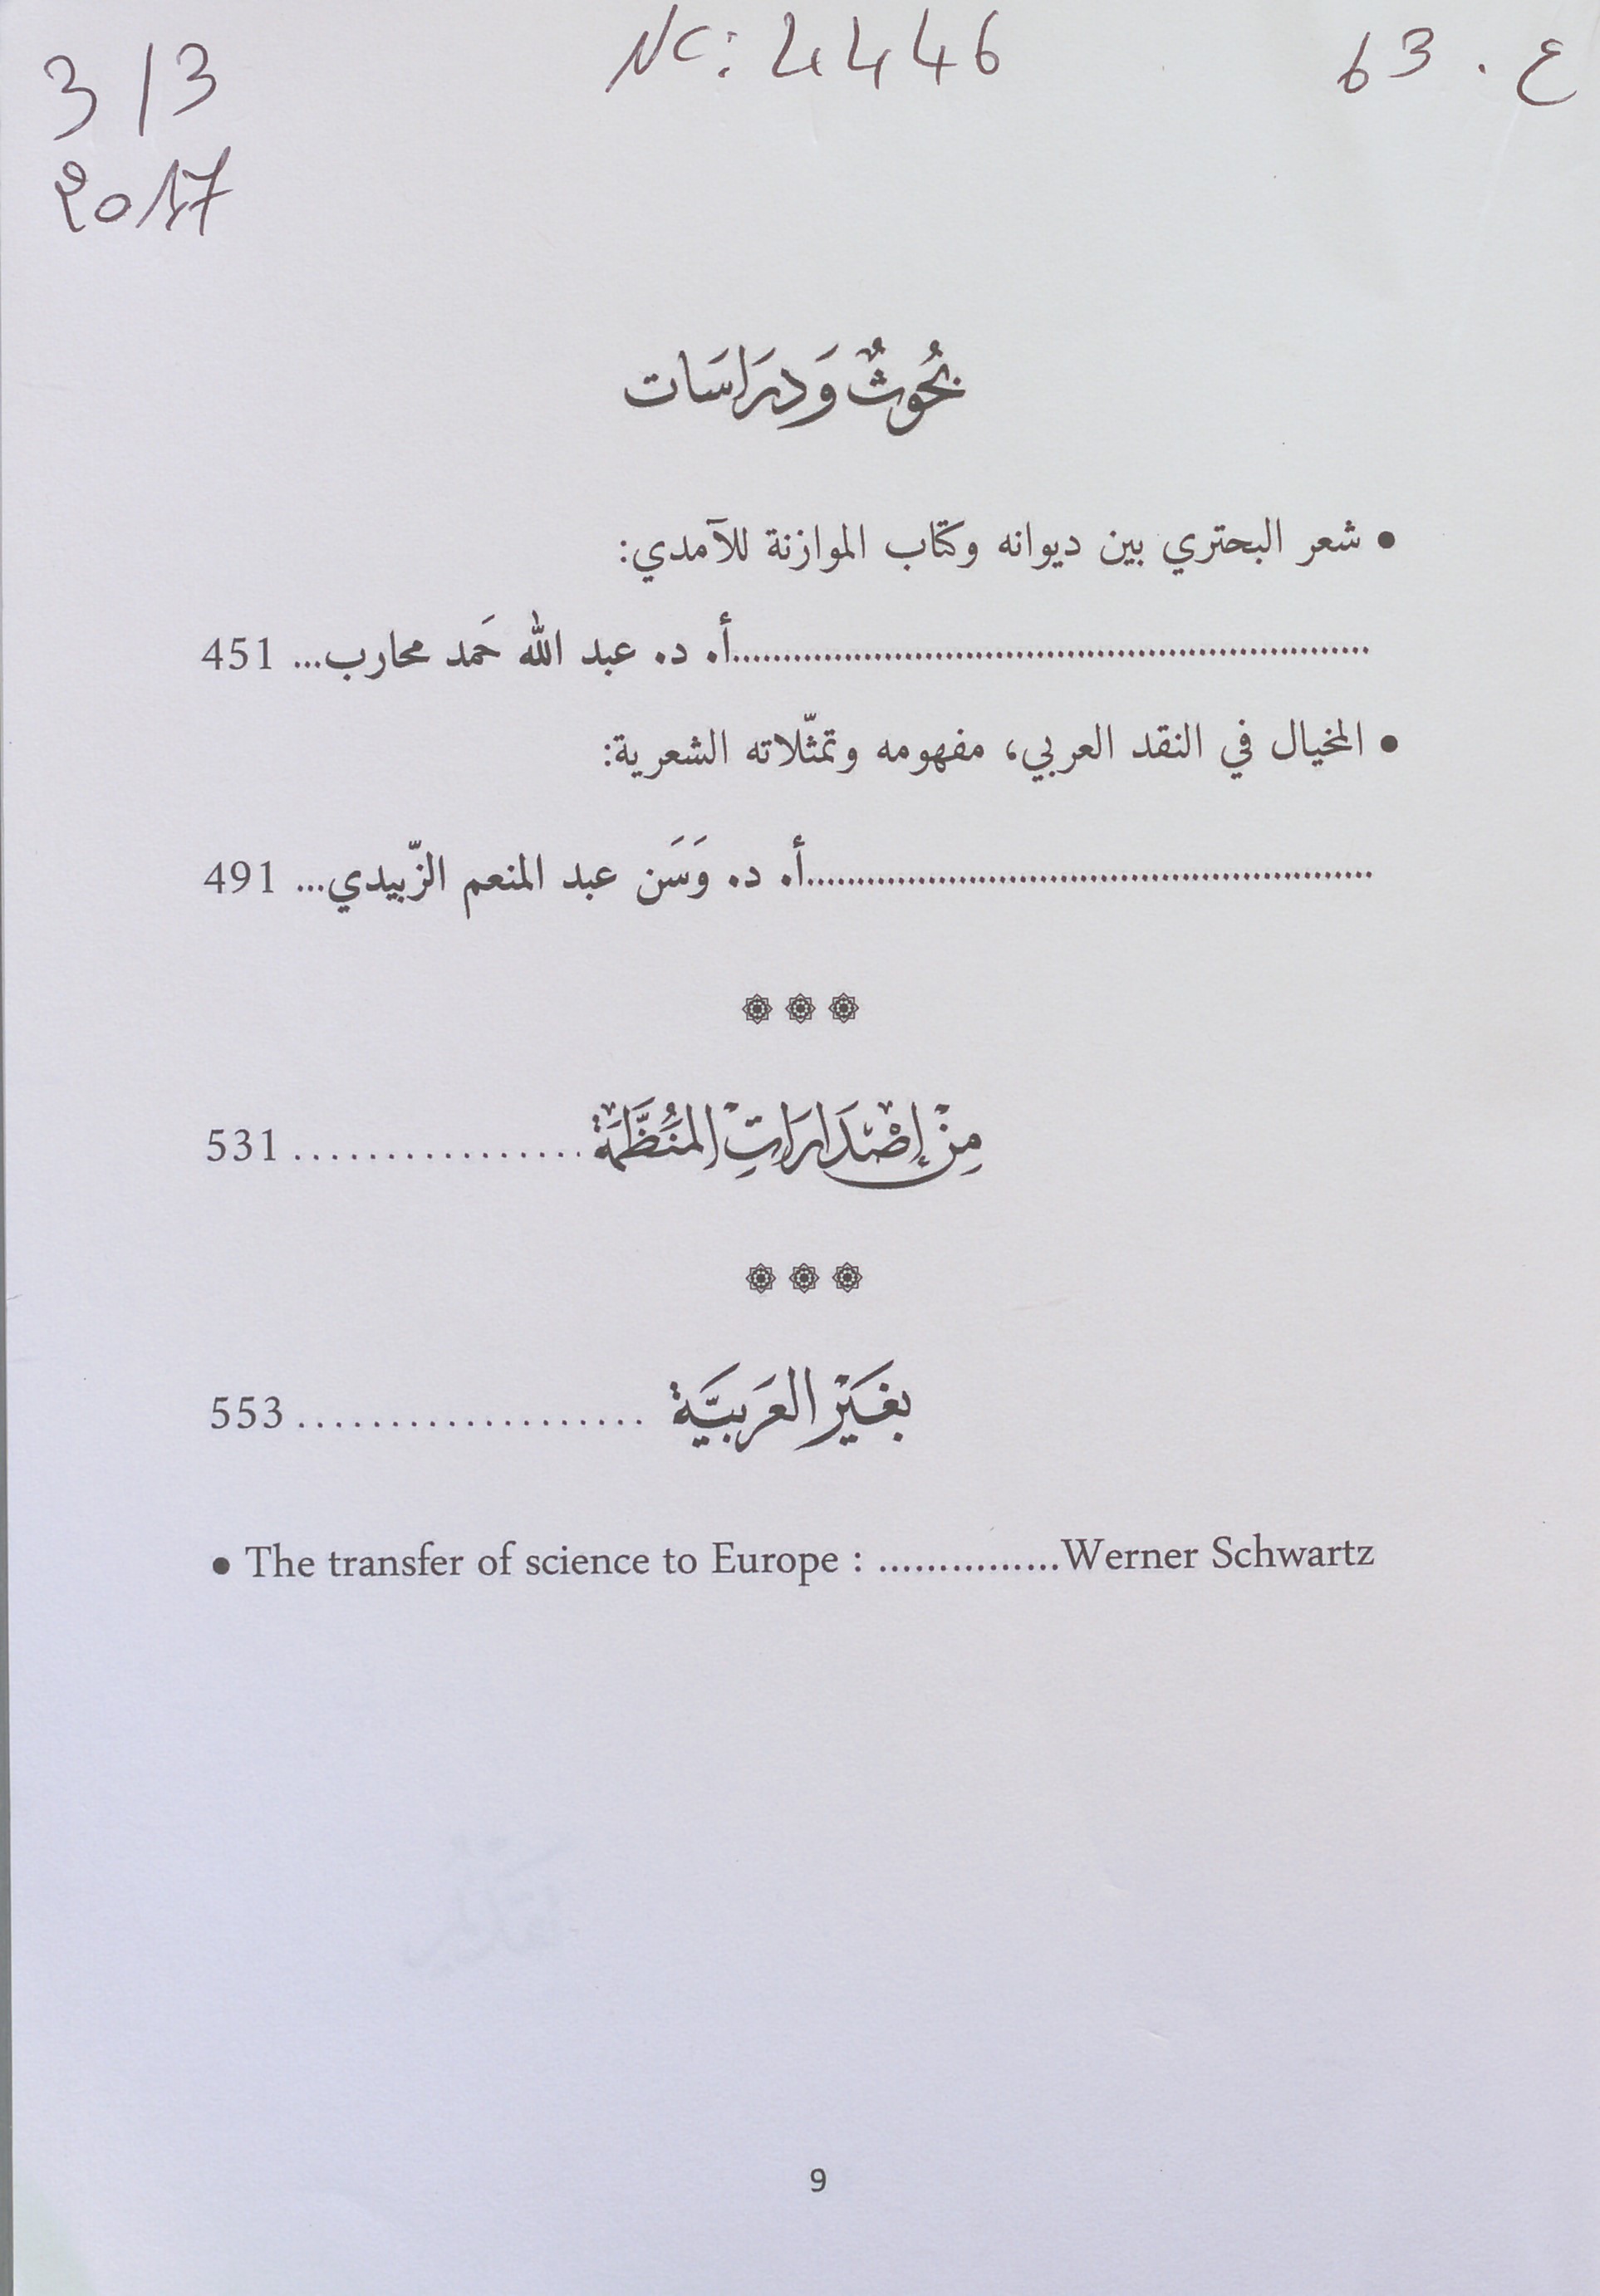 3/3
2017
NC: 4446
ع. 63
بُحُوثٌ وَدِرَاسَات
• شعر البحتري بين ديوانه وكتاب الموازنة للآمدي:
..........أ. د. عبد الله حَمد محارب... 451
• المخيال في النقد العربي، مفهومه وتمثّلاته الشعرية:
..........أ. د. وَسَن عبد المنعم الزّبيدي... 491
مِنْ إِصْدَارَاتِ المُنَظَّمَةْ ................ 531
بِغَيْرِ العَرَبيَّة ................... 553
• The transfer of science to Europe : ...............Werner Schwartz
9